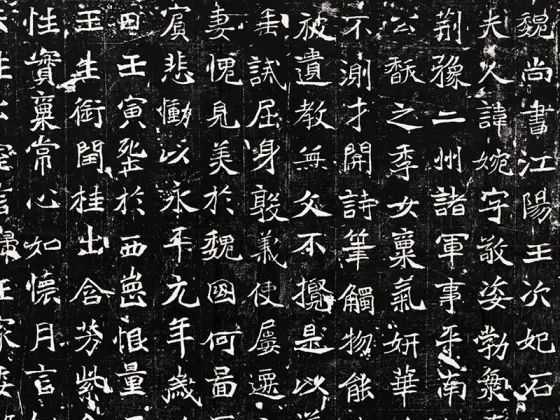 魏尚書江陽王次妃石
夫人諱婉字敬姿勃
荊豫二州諸軍事平南
公馛之季女稟氣妍華
不測才開詩筆觸物能
被遺教無文不攬是以
身義使屢
妻愧見美於魏國何圖
賓悲慟以永平元年歲
日壬寅葬於西崗恨量
生銜閏桂出含芳紫
性實稟常心如懷月言